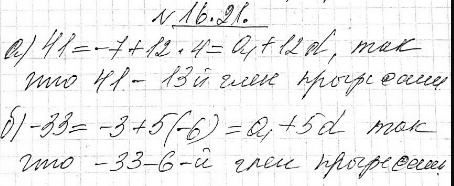 №16.21.
а) 41 = -7 + 12 · 4 = a₁ + 12d, так
что 41 - 13й член прогрессии
б) -33 = -3 + 5(-6) = a₁ + 5d так
что -33 - 6-й член прогрессии